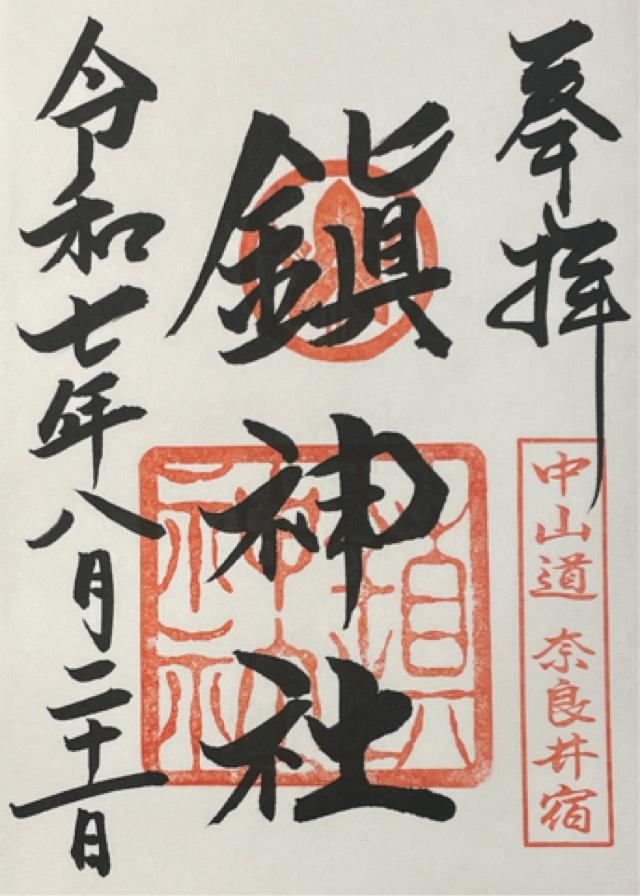 奉拝
中山道 奈良井宿
鎮神社
令和七年八月二十一日